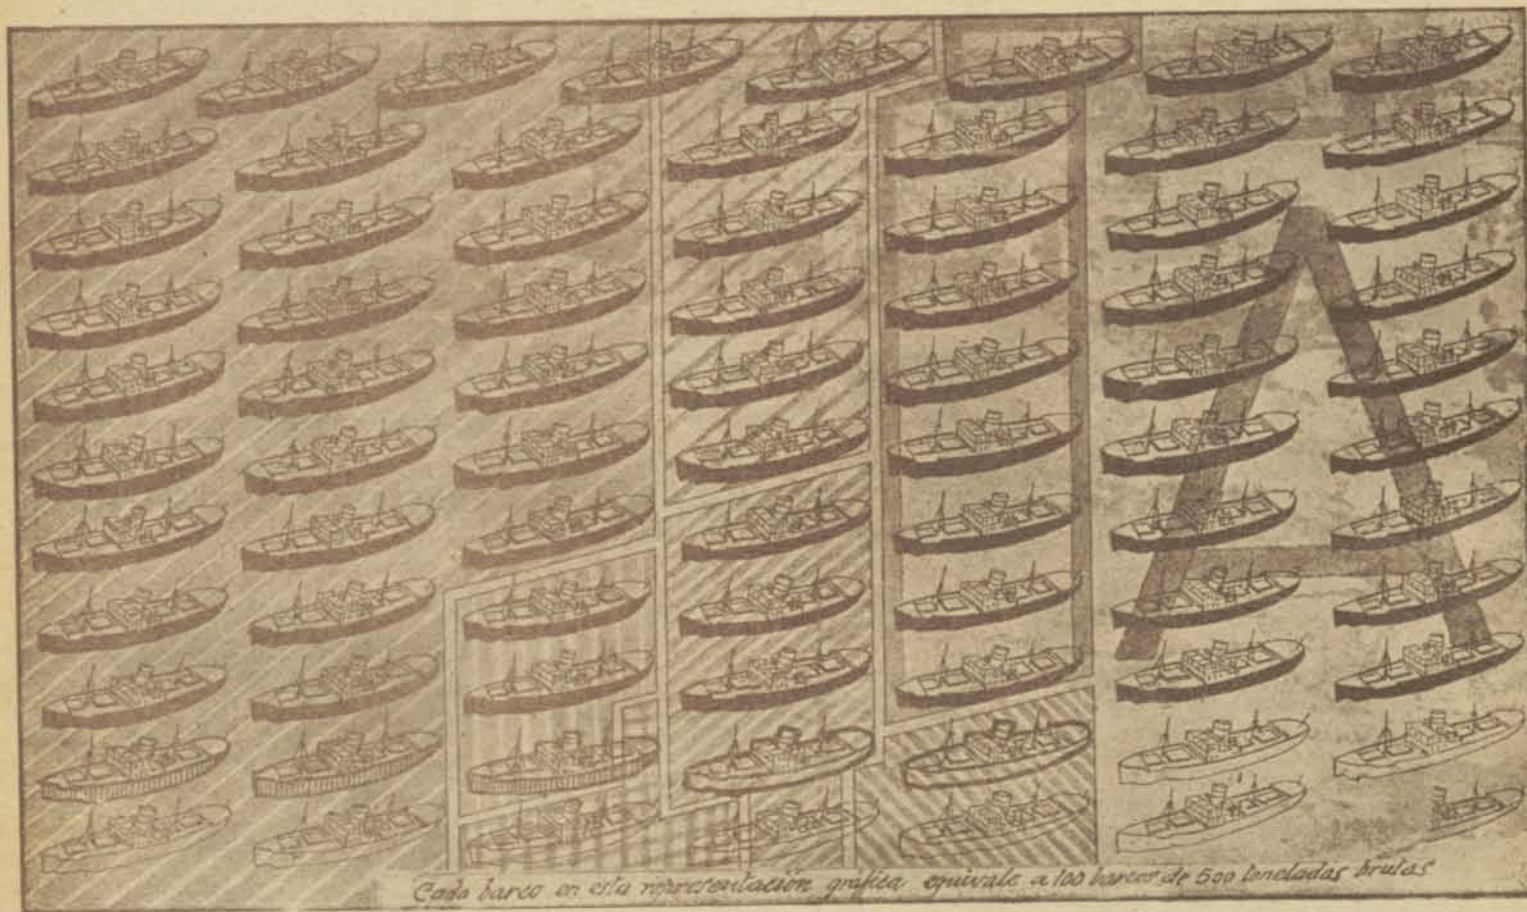 Cada barco en esta representación gráfica equivale a 100 barcos de 500 toneladas brutas
A